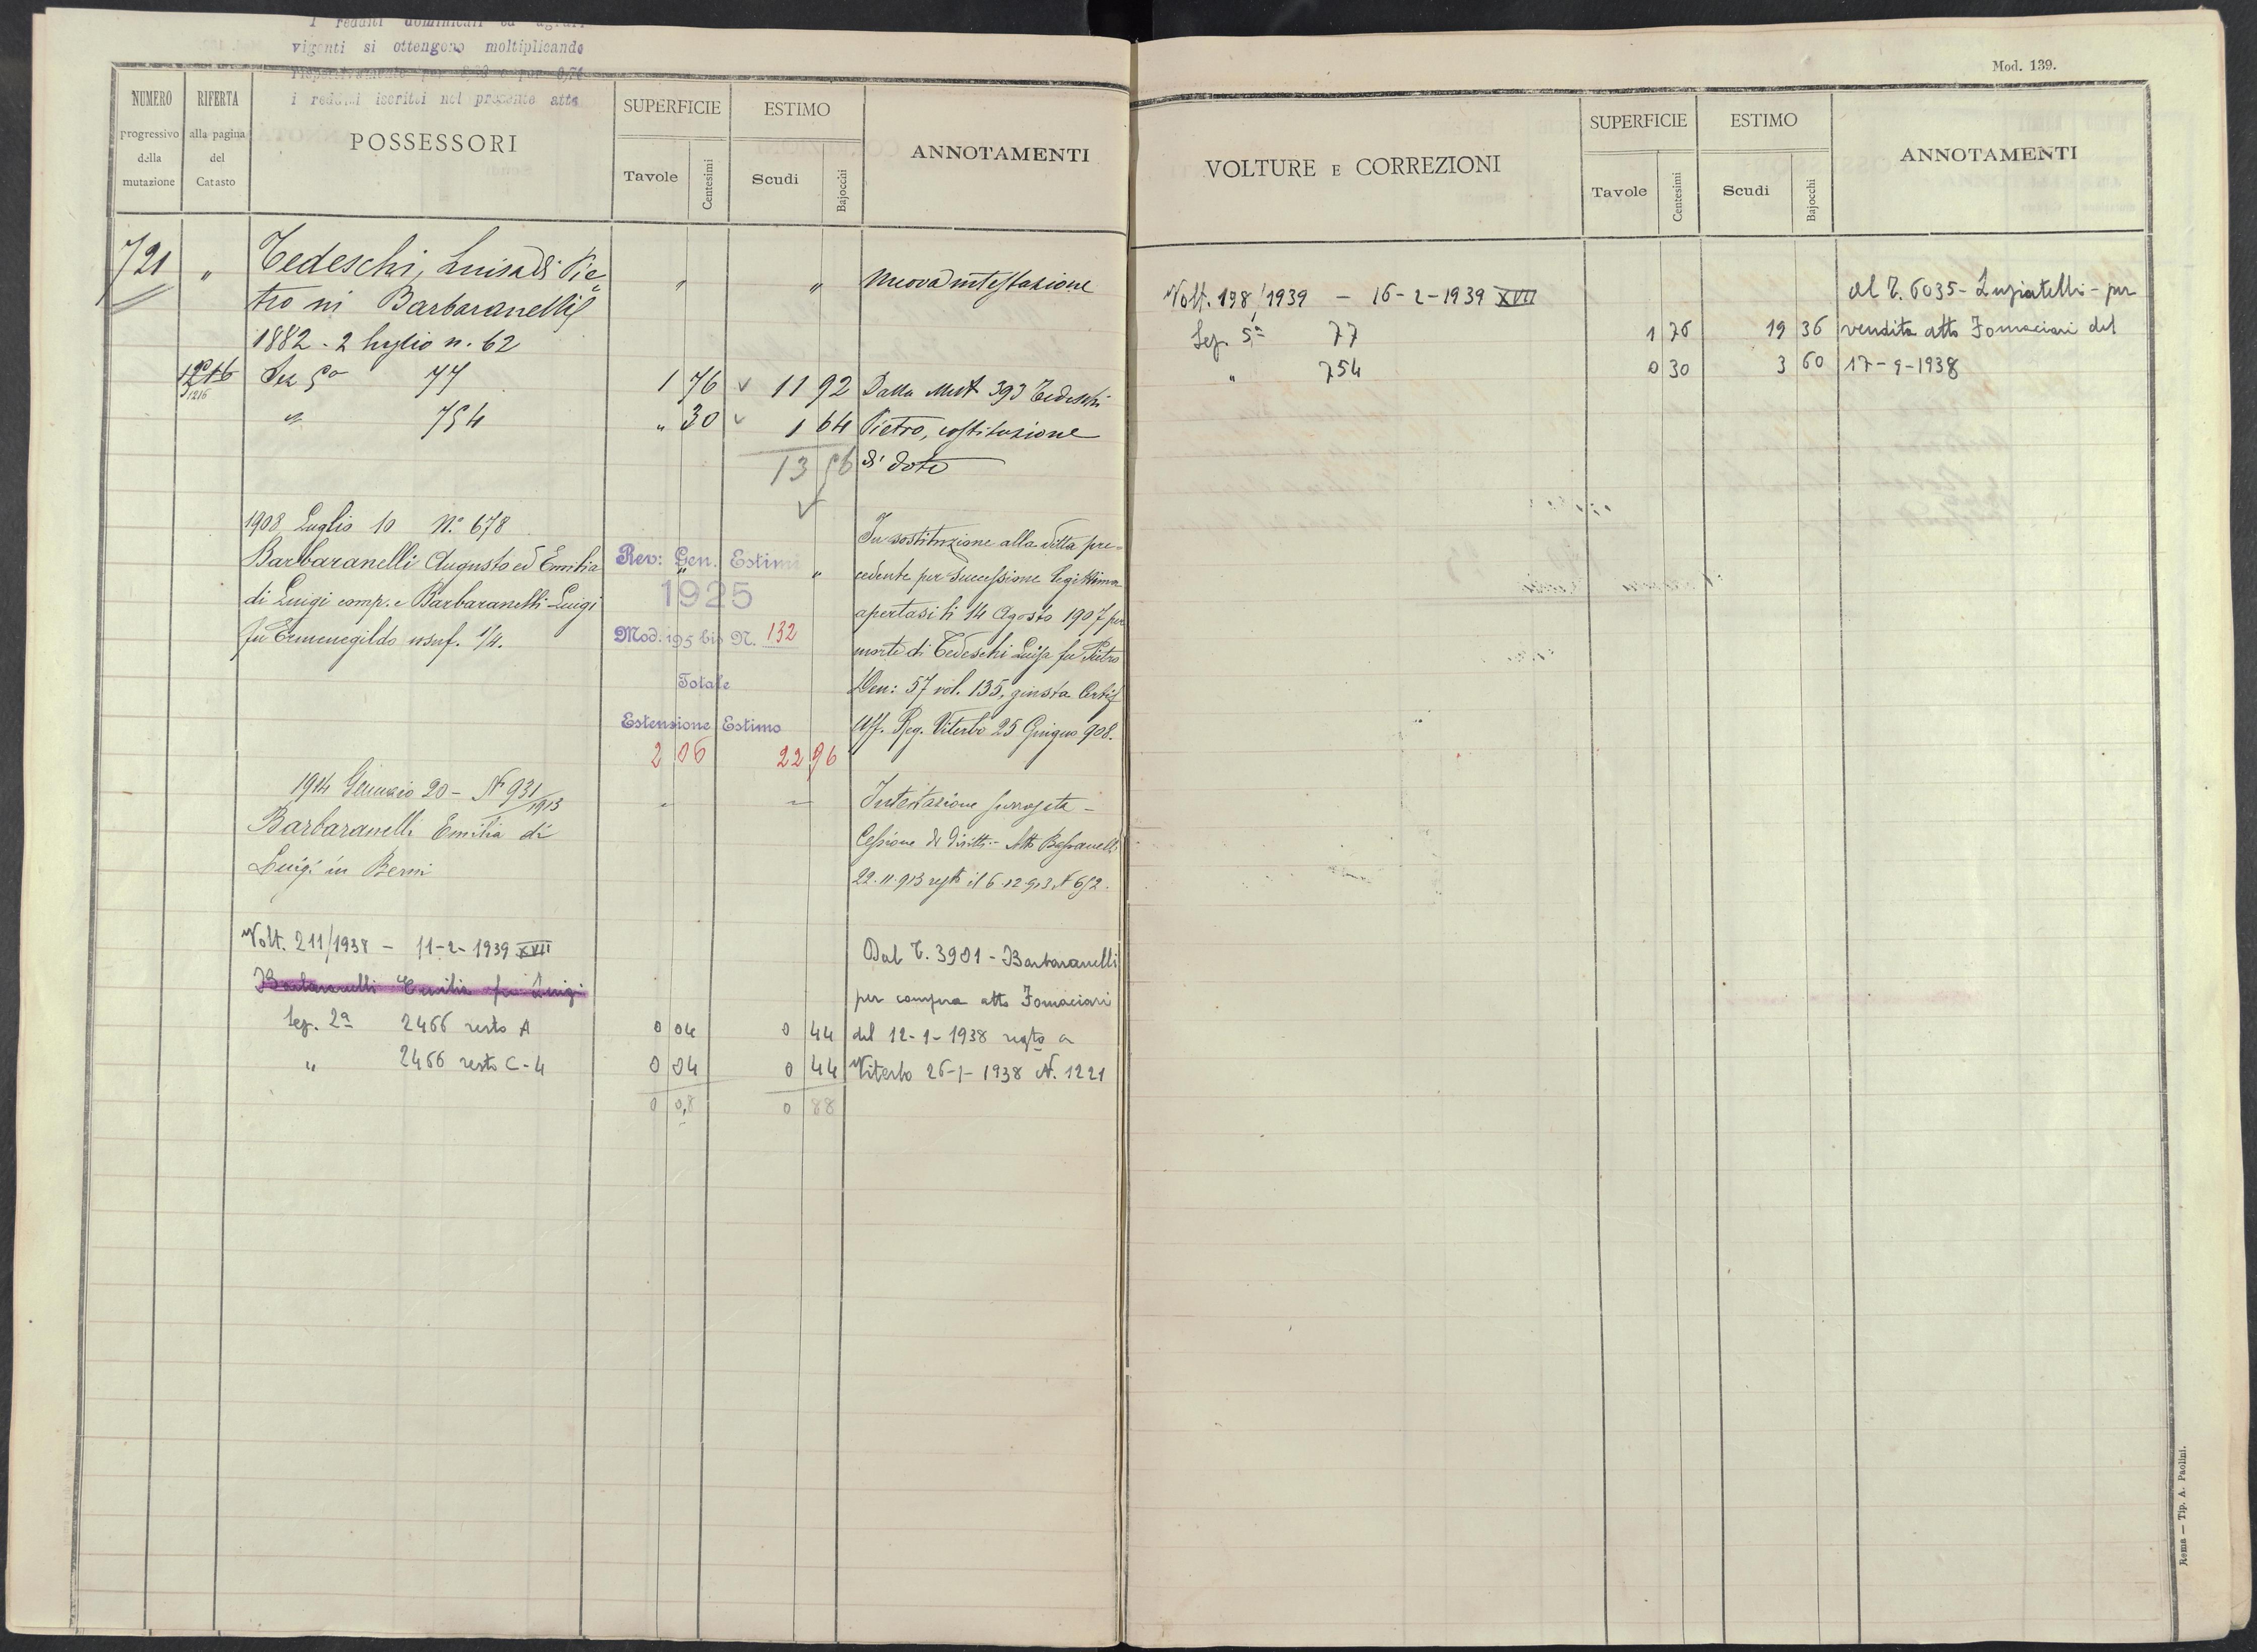 I redditi dominicali ed agrari
vigenti si ottengono moltiplicando
rispettivamente per
i redditi iscritti nel presente atto
NUMERO
progressivo
della
mutazione
RIFERTA
alla pagina
del
Catasto
POSSESSORI
SUPERFICIE
Tavole
Centesimi
ESTIMO
Scudi
Bajocchi
ANNOTAMENTI
721 " Tedeschi, Luisa di Pie= " " Nuova intestazione
tro in Barbaranelli
1882 - 2 luglio n. 62
1216 Sez 5a 77 1 76 11 92 Dalla Mut 393 Tedeschi
1216
" 754 " 30 1 64 Pietro, costituzione
13 56 di dote
1908 Luglio 10 N° 678
Barbaranelli Augusto ed Emilia
di Luigi comp. e Barbaranelli Luigi
fu Ermenegildo usuf. 1/4.
Rev: Gen. Estimi
1925
Mod. 195 bis N. 132
Totale
Estensione Estimo
2 06 22 96
In sostituzione alla ditta pre=
cedente per successione legittima
apertasi li 14 Agosto 1907 per
morte di Tedeschi Luisa fu Pietro
Den: 57 vol. 135, giusta Certif
Uff. Reg. Viterbo 25 Giugno 908.
1914 Gennaio 20 - N 931/1913
Barbaranelli Emilia di
Luigi in Berni
Intestazione surrogata -
Cessione di diritti - Atto
22-11-913 regto il 6-12-913 N 652.
Volt. 211/1938 - 11-2-1939 XVII
Barbaranelli Emilia fu Luigi
Sez. 2a 2466 resto A 0 04 0 44
" 2466 resto C-4 0 04 0 44
0 08 0 88
Dal T. 3901 - Barbaranelli
per compra atto Fornaciari
del 12-1-1938 regto a
Viterbo 26-1-1938 N. 1221
Mod. 139.
VOLTURE E CORREZIONI
SUPERFICIE
Tavole
Centesimi
ESTIMO
Scudi
Bajocchi
ANNOTAMENTI
Volt. 198/1939 - 16-2-1939 XVII al T. 6035 - Luziatelli - per
Sez. 5a 77 1 76 19 36 vendita atto Fornaciari del
" 754 0 30 3 60 17-9-1938
Roma — Tip. A. Paolini.